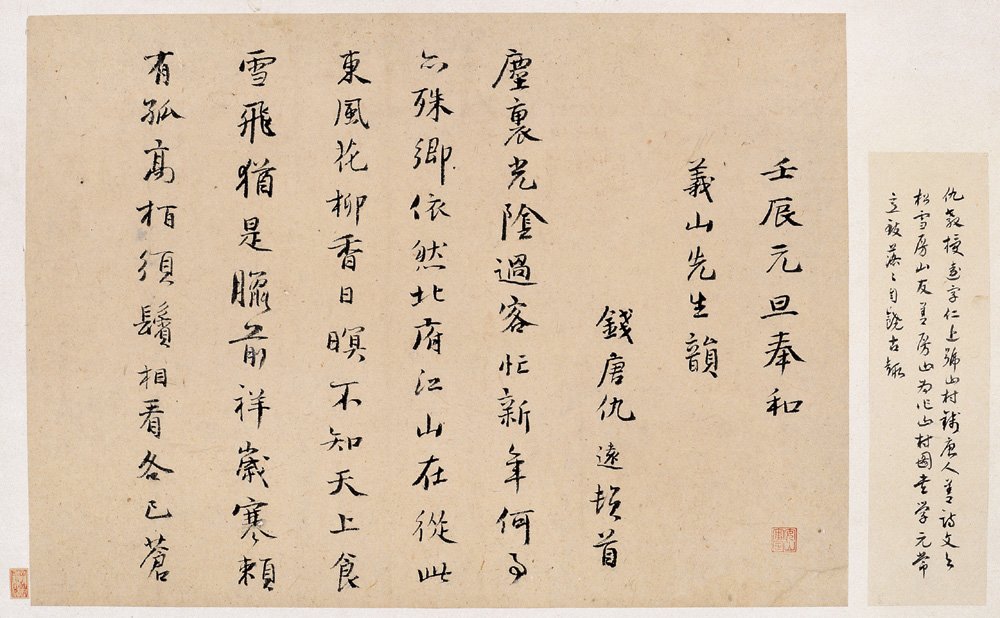 仇教授遠字仁近號山村錢唐人善詩文与
松雪房山友善房山为作山村圖書学元常
立致落々自饒古趣
壬辰元旦奉和
義山先生韻
錢唐仇遠頓首
塵裏光陰過客忙新年何事
亦殊鄉依然北府江山在從此
東風花柳香日暝不知天上食
雪飛猶是臘前祥歲寒賴
有孤高栢須鬢相看各已蒼